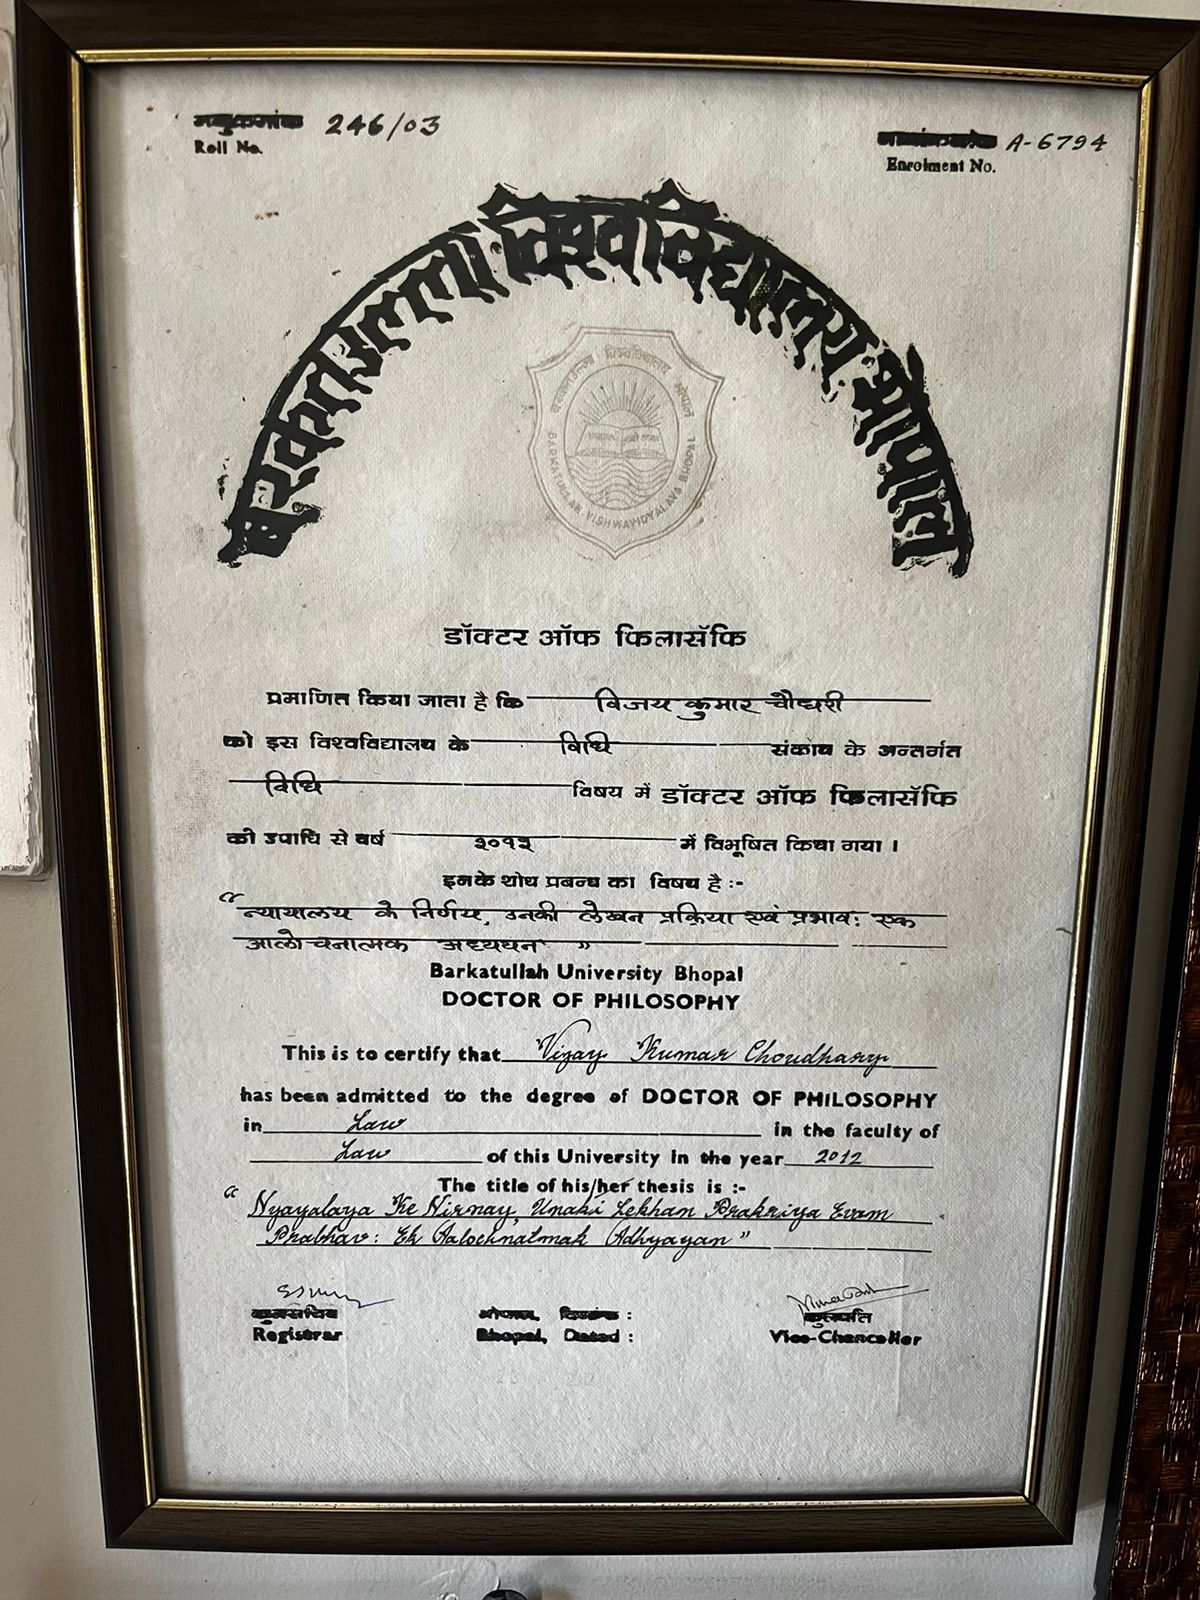 246/03
Roll No.
A-6794
Enrolment No.
बरकतउल्ला विश्वविद्यालय भोपाल
बरकतउल्ला विश्वविद्यालय भोपाल
BARKATULLAH VISHWAVIDYALAYA BHOPAL
डॉक्टर ऑफ फिलासॅफि
प्रमाणित किया जाता है कि विजय कुमार चौधरी
को इस विश्वविद्यालय के विधि संकाय के अन्तर्गत
विधि विषय में डॉक्टर ऑफ फिलासॅफि
की उपाधि से वर्ष २०१२ में विभूषित किया गया ।
इनके शोध प्रबन्ध का विषय है :-
“न्यायालय के निर्णय, उनकी लेखन प्रक्रिया एवं प्रभाव: एक
आलोचनात्मक अध्ययन”
Barkatullah University Bhopal
DOCTOR OF PHILOSOPHY
This is to certify that Vijay Kumar Choudhary
has been admitted to the degree of DOCTOR OF PHILOSOPHY
in Law in the faculty of
Law of this University in the year 2012
The title of his/her thesis is :-
“Nyayalaya Ke Nirnay, Unaki Lekhan Prakriya Evam
Prabhav: Ek Aalochnatmak Adhyayan”
कुलसचिव भोपाल, दिनांक : कुलपति
Registrar Bhopal, Dated : Vice-Chancellor